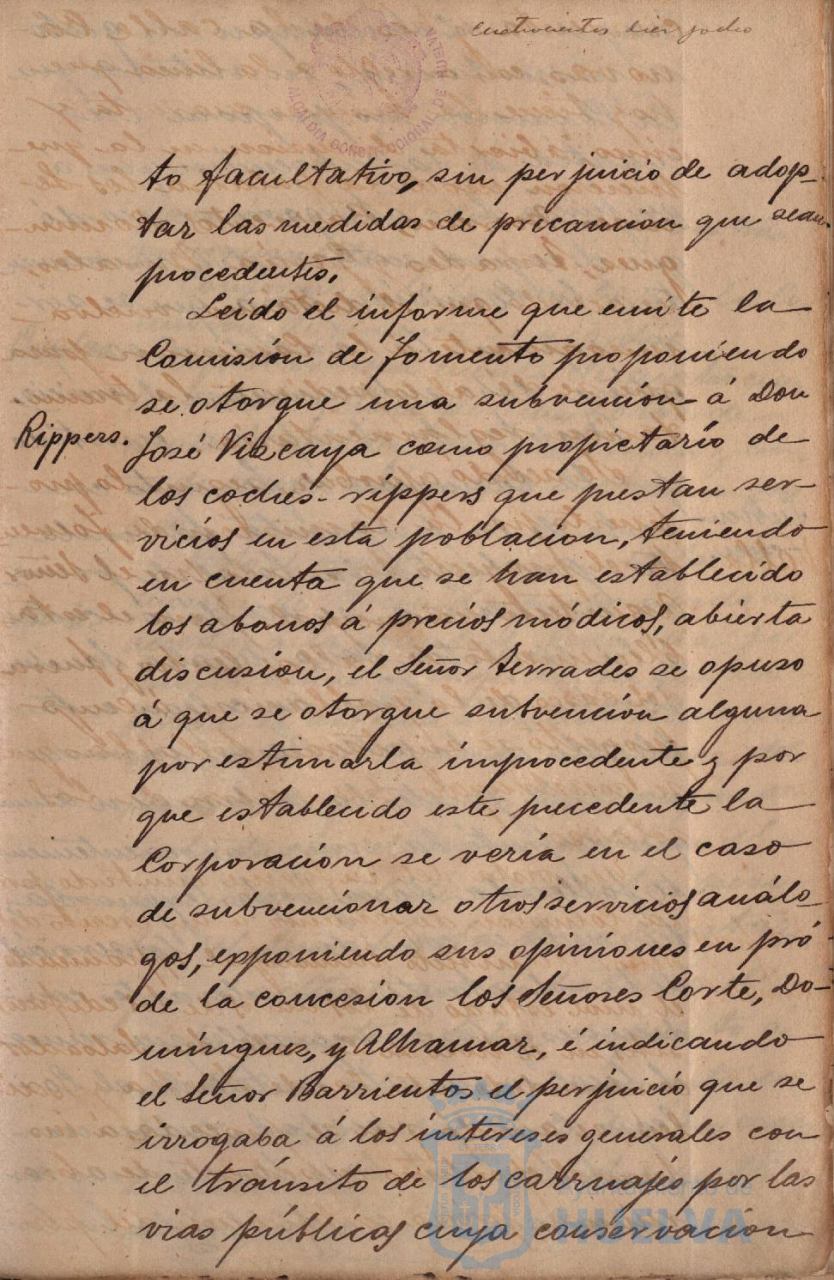 cuatrocientos diez y ocho
ALCALDIA CONSTITUCIONAL DE HUELVA
to facultativo, sin perjuicio de adop-
tar las medidas de precaucion que sean
procedentes.
Leido el informe que emite la
Comisión de Fomento proponiendo
se otorgue una subvencion á Don
Rippers.
José Viscaya como propietario de
los coches-rippers que prestan ser-
vicios en esta poblacion, teniendo
en cuenta que se han establecido
los abonos á precios módicos, abierta
discusion, el Señor Terrades se opuso
á que se otorgue subvención alguna
por estimarla improcedente y por
que establecido este precedente la
Corporación se vería en el caso
de subvencionar otros servicios análo-
gos, exponiendo sus opiniones en pró
de la concesion los Señores Corte, Do-
mínguez, y Alhamar, é indicando
el Señor Barrientos el perjuicio que se
irrogaba á los intereses generales con
el tránsito de los carruajes por las
vias públicas cuya conservación
HUELVA